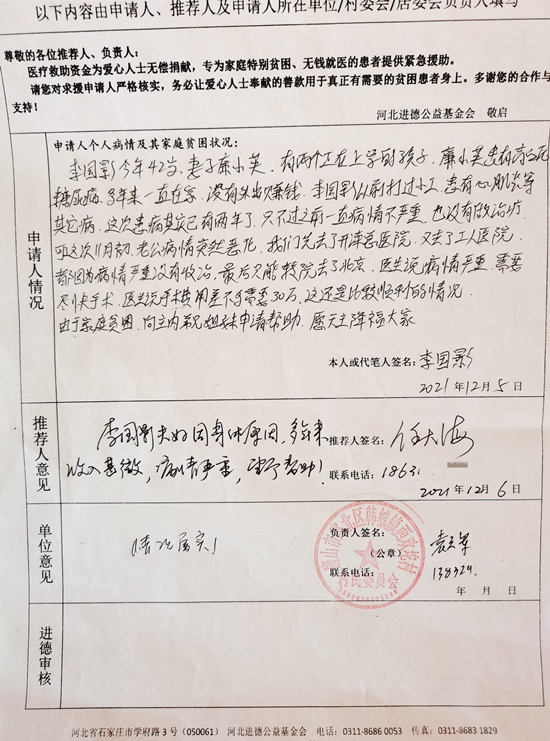 以下内容由申请人、推荐人及申请人所在单位/村委会/居委会负责人填写
尊敬的各位推荐人、负责人：
医疗救助资金为爱心人士无偿捐献，专为家庭特别贫困、无钱就医的患者提供紧急援助。
请您对求援申请人严格核实，务必让爱心人士奉献的善款用于真正有需要的贫困患者身上。多谢您的合作与
支持！
河北进德公益基金会 敬启
申请人情况
申请人个人病情及其家庭贫困状况：
李国影今年42岁，妻子廉小芙，有两个正在上学的孩子，廉小芙患有高血压
糖尿病，多年来一直在家，没有外出赚钱，李国影以前打过小工，患有心肌炎等
其它病，这次患病其实已有两年了，只不过之前一直病情不严重，也没有做治疗
可这次11月初，老公病情突然恶化，我们先去了开滦总医院，又去了工人医院，
都因为病情严重没有收治，最后只能转院去了北京，医生说病情严重，需要
尽快手术，医生说手术费用差不多需要30万，这还是比较顺利的情况
由于家庭贫困，向主内弟兄姐妹申请帮助，愿天主降福大家
本人或代笔人签名：李国影
2021年12月5日
推荐人意见
李国影夫妇因身体原因，多年来
收入甚微，病情严重，望予帮助！
推荐人签名：任大海
联系电话：1863
2021年12月6日
单位意见
情况属实！
负责人签名：
（公章）
联系电话：138324
年 月 日
村民委员会
进德审核
河北省石家庄市学府路3号（050061） 河北进德公益基金会 电话：0311-8686 0053 传真：0311-8683 1829